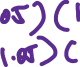 05) (1
1.05) (